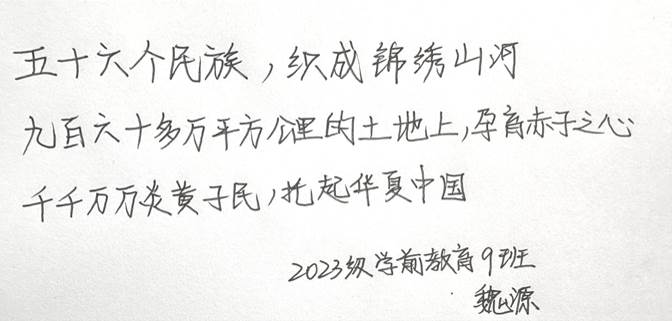 五十六个民族，织成锦绣山河
九百六十多万平方公里的土地上，孕育赤子之心
千千万万炎黄子民，托起华夏中国
2023级学前教育9班
魏源